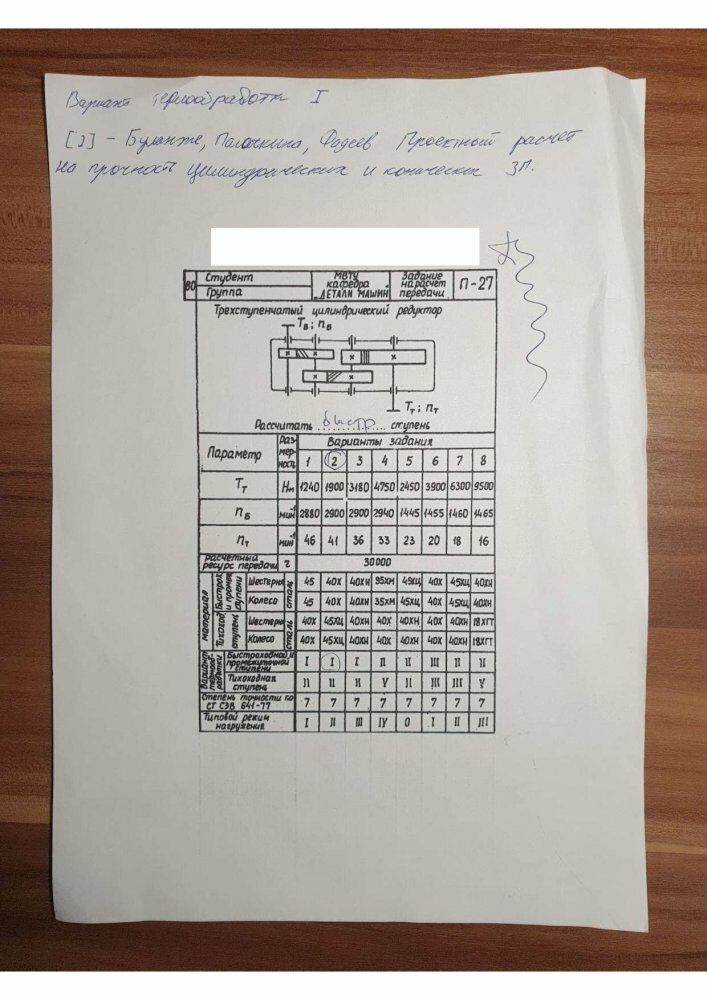 Вариант термообработки I
[2] - Буланже, Палочкина, Фадеев Проектный расчет
на прочность цилиндрических и конических ЗП.
80 Студент МВТУ кафедра "ДЕТАЛИ МАШИН" Задание на расчет передачи П-27
Группа
Трехступенчатый цилиндрический редуктор
Tб; nб
Tт; nт
Рассчитать быстр... ступень
Параметр Размерность Варианты задания
1 2 3 4 5 6 7 8
Tт Нм 1240 1900 3180 4750 2450 3900 6300 9500
nб мин⁻¹ 2880 2900 2900 2940 1445 1455 1460 1465
nт мин⁻¹ 46 41 36 33 23 20 18 16
расчетный ресурс передачи ч 30000
материал Быстрох. и промеж. ступени Шестерня сталь 45 40Х 40ХН 35ХМ 45ХЦ 40Х 45ХЦ 40ХН
Колесо 45 40Х 40ХН 35ХМ 45ХЦ 40Х 45ХЦ 40ХН
Тихоход. ступень Шестерня сталь 40Х 45ХЦ 40ХН 40Х 40Х 40Х 40ХН 18ХГТ
Колесо 40Х 45ХЦ 40ХН 40Х 40Х 40Х 40ХН 18ХГТ
Вариант термообработки Быстроходной и промежуточной ступени I I I II II III II II
Тихоходная ступень II II II V II III III V
Степень точности по СТ СЭВ 641-77 7 7 7 7 7 7 7 7
Типовой режим нагружения I II III IV 0 I II III